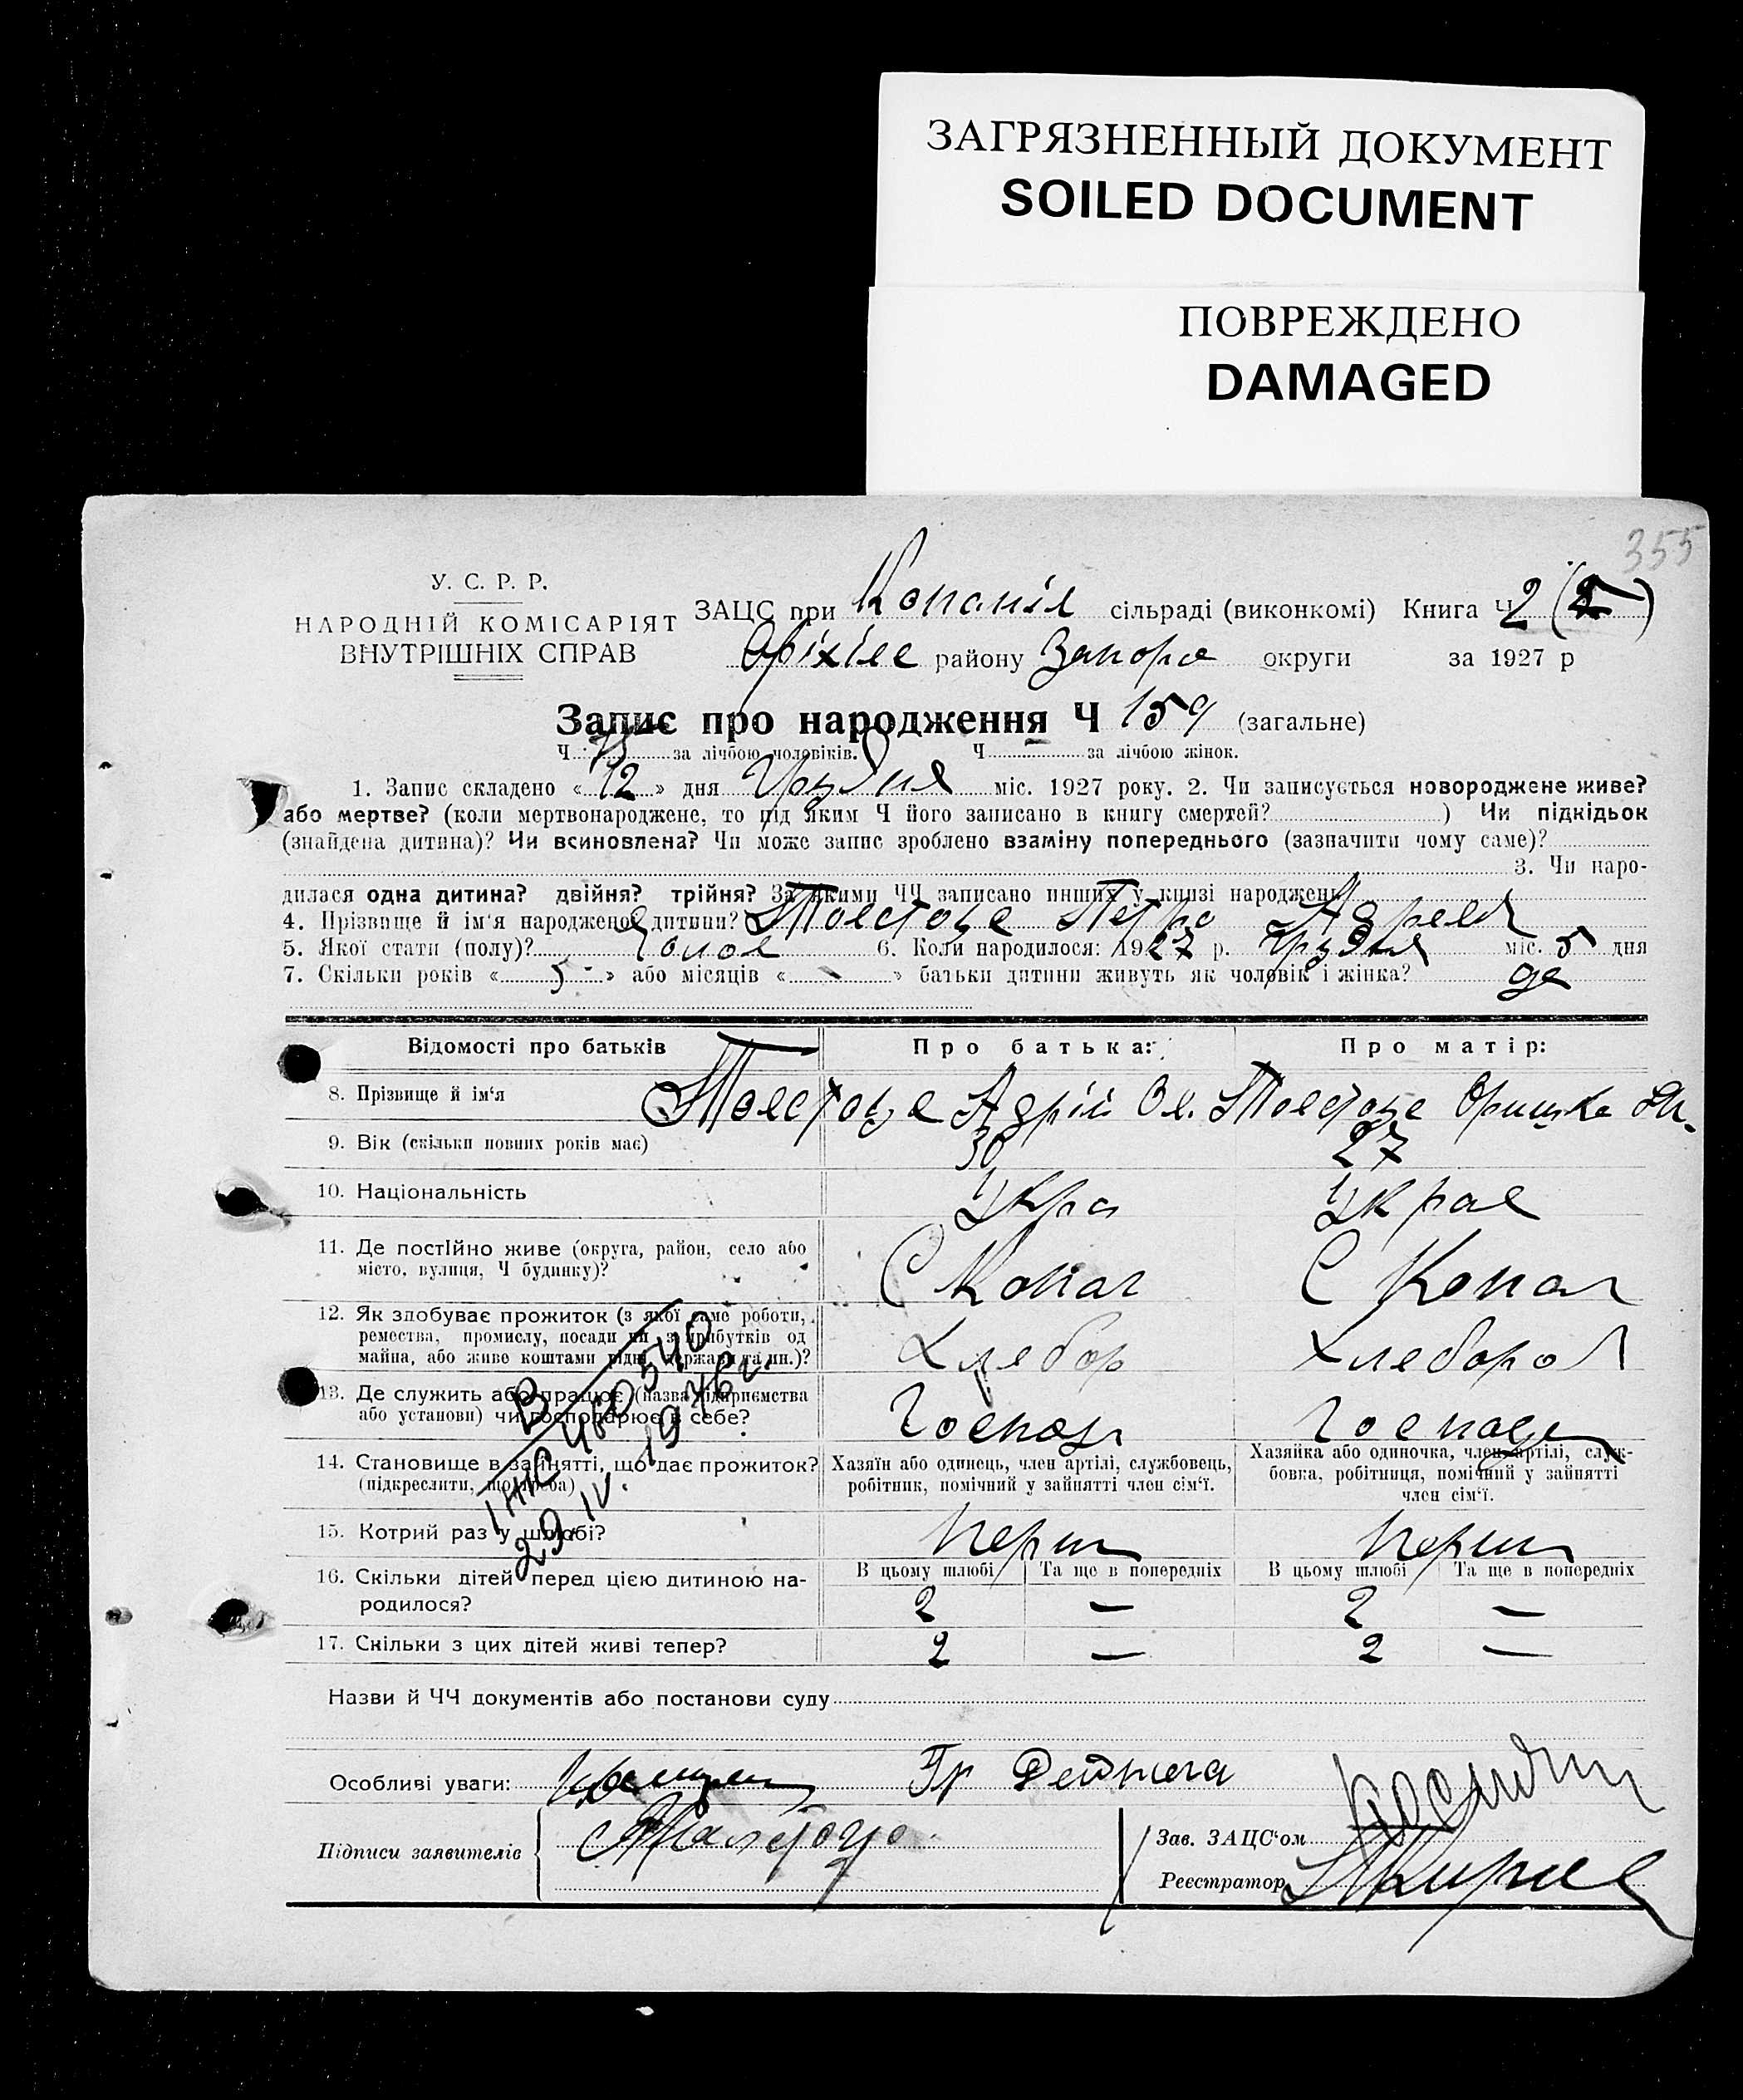 ЗАГРЯЗНЕННЫЙ ДОКУМЕНТ
SOILED DOCUMENT
ПОВРЕЖДЕНО
DAMAGED
355
У. С. Р. Р.
НАРОДНІЙ КОМІСАРІЯТ
ВНУТРІШНІХ СПРАВ
ЗАЦС при Копанів сільраді (виконкомі) Книга Ч 2
Оріхів району Запорж округи за 1927 р
Запис про народження Ч 159 (загальне)
Ч 75 за лічбою чоловіків. Ч за лічбою жінок.
1. Запис складено «12» дня Грудня міс. 1927 року. 2. Чи записується новороджене живе?
або мертве? (коли мертвонароджене, то під яким Ч його записано в книгу смертей? ) Чи підкідьок
(знайдена дитина)? Чи всиновлена? Чи може запис зроблено взаміну попереднього (зазначити чому саме)?
3. Чи наро-
дилася одна дитина? двійня? трійня? За якими ЧЧ записано инших у книзі народжень
4. Прізвище й ім'я народженої дитини? Петро
5. Якої стати (полу)? Чолов 6. Коли народилося: 1927 р. Грудня міс. 5 дня
7. Скільки років « 5 » або місяців « - » батьки дитини живуть як чоловік і жінка?
Відомості про батьків Про батька: Про матір:
8. Прізвище й ім'я
9. Вік (скільки повних років має) 30 27
10. Національність Укра Украе
11. Де постійно живе (округа, район, село або
місто, вулиця, Ч будинку)? С Копан С Копан
12. Як здобуває прожиток (з якої саме роботи,
ремества, промислу, посади чи з прибутків од
майна, або живе коштами рідні, держави та ин.)? Хлебор Хлебороб
13. Де служить або працює (назва підприємства
або установи) чи господарює в себе? Господ Господ
14. Становище в зайнятті, що дає прожиток?
(підкреслити, що треба)
Хазяїн або одинець, член артілі, службовець,
робітник, помічний у зайнятті член сім'ї.
Хазяйка або одиночка, член артілі, служ-
бовка, робітниця, помічний у зайнятті
член сім'ї.
15. Котрий раз у шлюбі? Перши Перши
16. Скільки дітей перед цією дитиною на-
родилося?
В цьому шлюбі Та ще в попередніх В цьому шлюбі Та ще в попередніх
2 — 2 —
17. Скільки з цих дітей живі тепер? 2 — 2 —
29.IV.1976г.
Назви й ЧЧ документів або постанови суду
Особливі уваги: Гр
Підписи заявителів
Зав. ЗАЦС'ом
Реєстратор